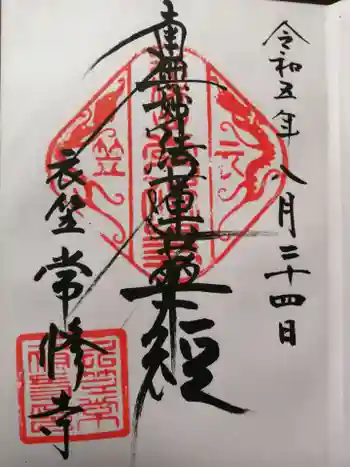 令和五年八月二十四日
南無妙法蓮華経
衣笠 常修寺